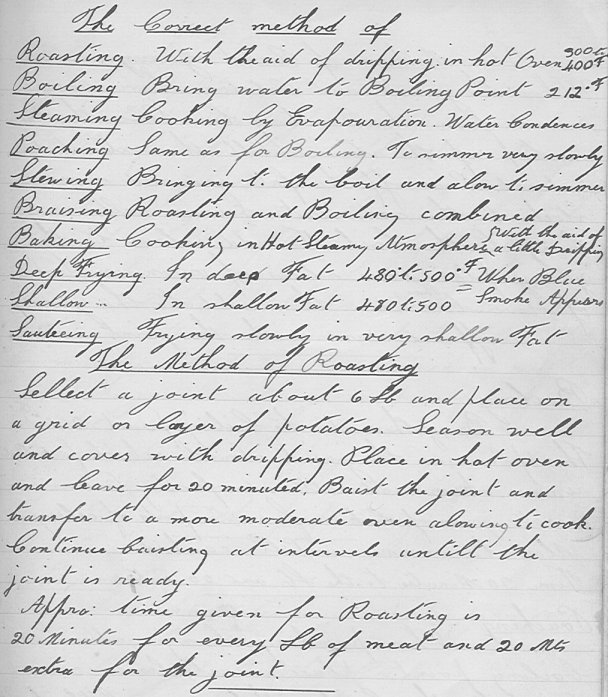 The Correct method of
Roasting. With the aid of dripping in hot Oven 300 to 400°F
Boiling Bring water to Boiling Point 212°F
Steaming Cooking by Evapouration. Water Condences
Poaching Same as for Boiling. To simmer very slowly
Stewing Bringing to the boil and alow to simmer
Braising Roasting and Boiling combined
Baking Cooking in Hot Steamy Atmosphere, With the aid of a little Dripping
Deep Frying. In deep Fat 480 to 500°F = When Blue
Shallow " In shallow Fat 480 to 500 Smoke Appears
Sauteeing Frying slowly in very shallow Fat
The Method of Roasting
Sellect a joint about 6 lb and place on
a grid or layer of potatoes. Season well
and cover with dripping. Place in hot oven
and leave for 20 minuted. Baist the joint and
transfer to a more moderate oven alowing to cook.
Continue baisting at intervels untill the
joint is ready.
Appro: time given for Roasting is
20 Minutes for every lb of meat and 20 Mts
extra for the joint.